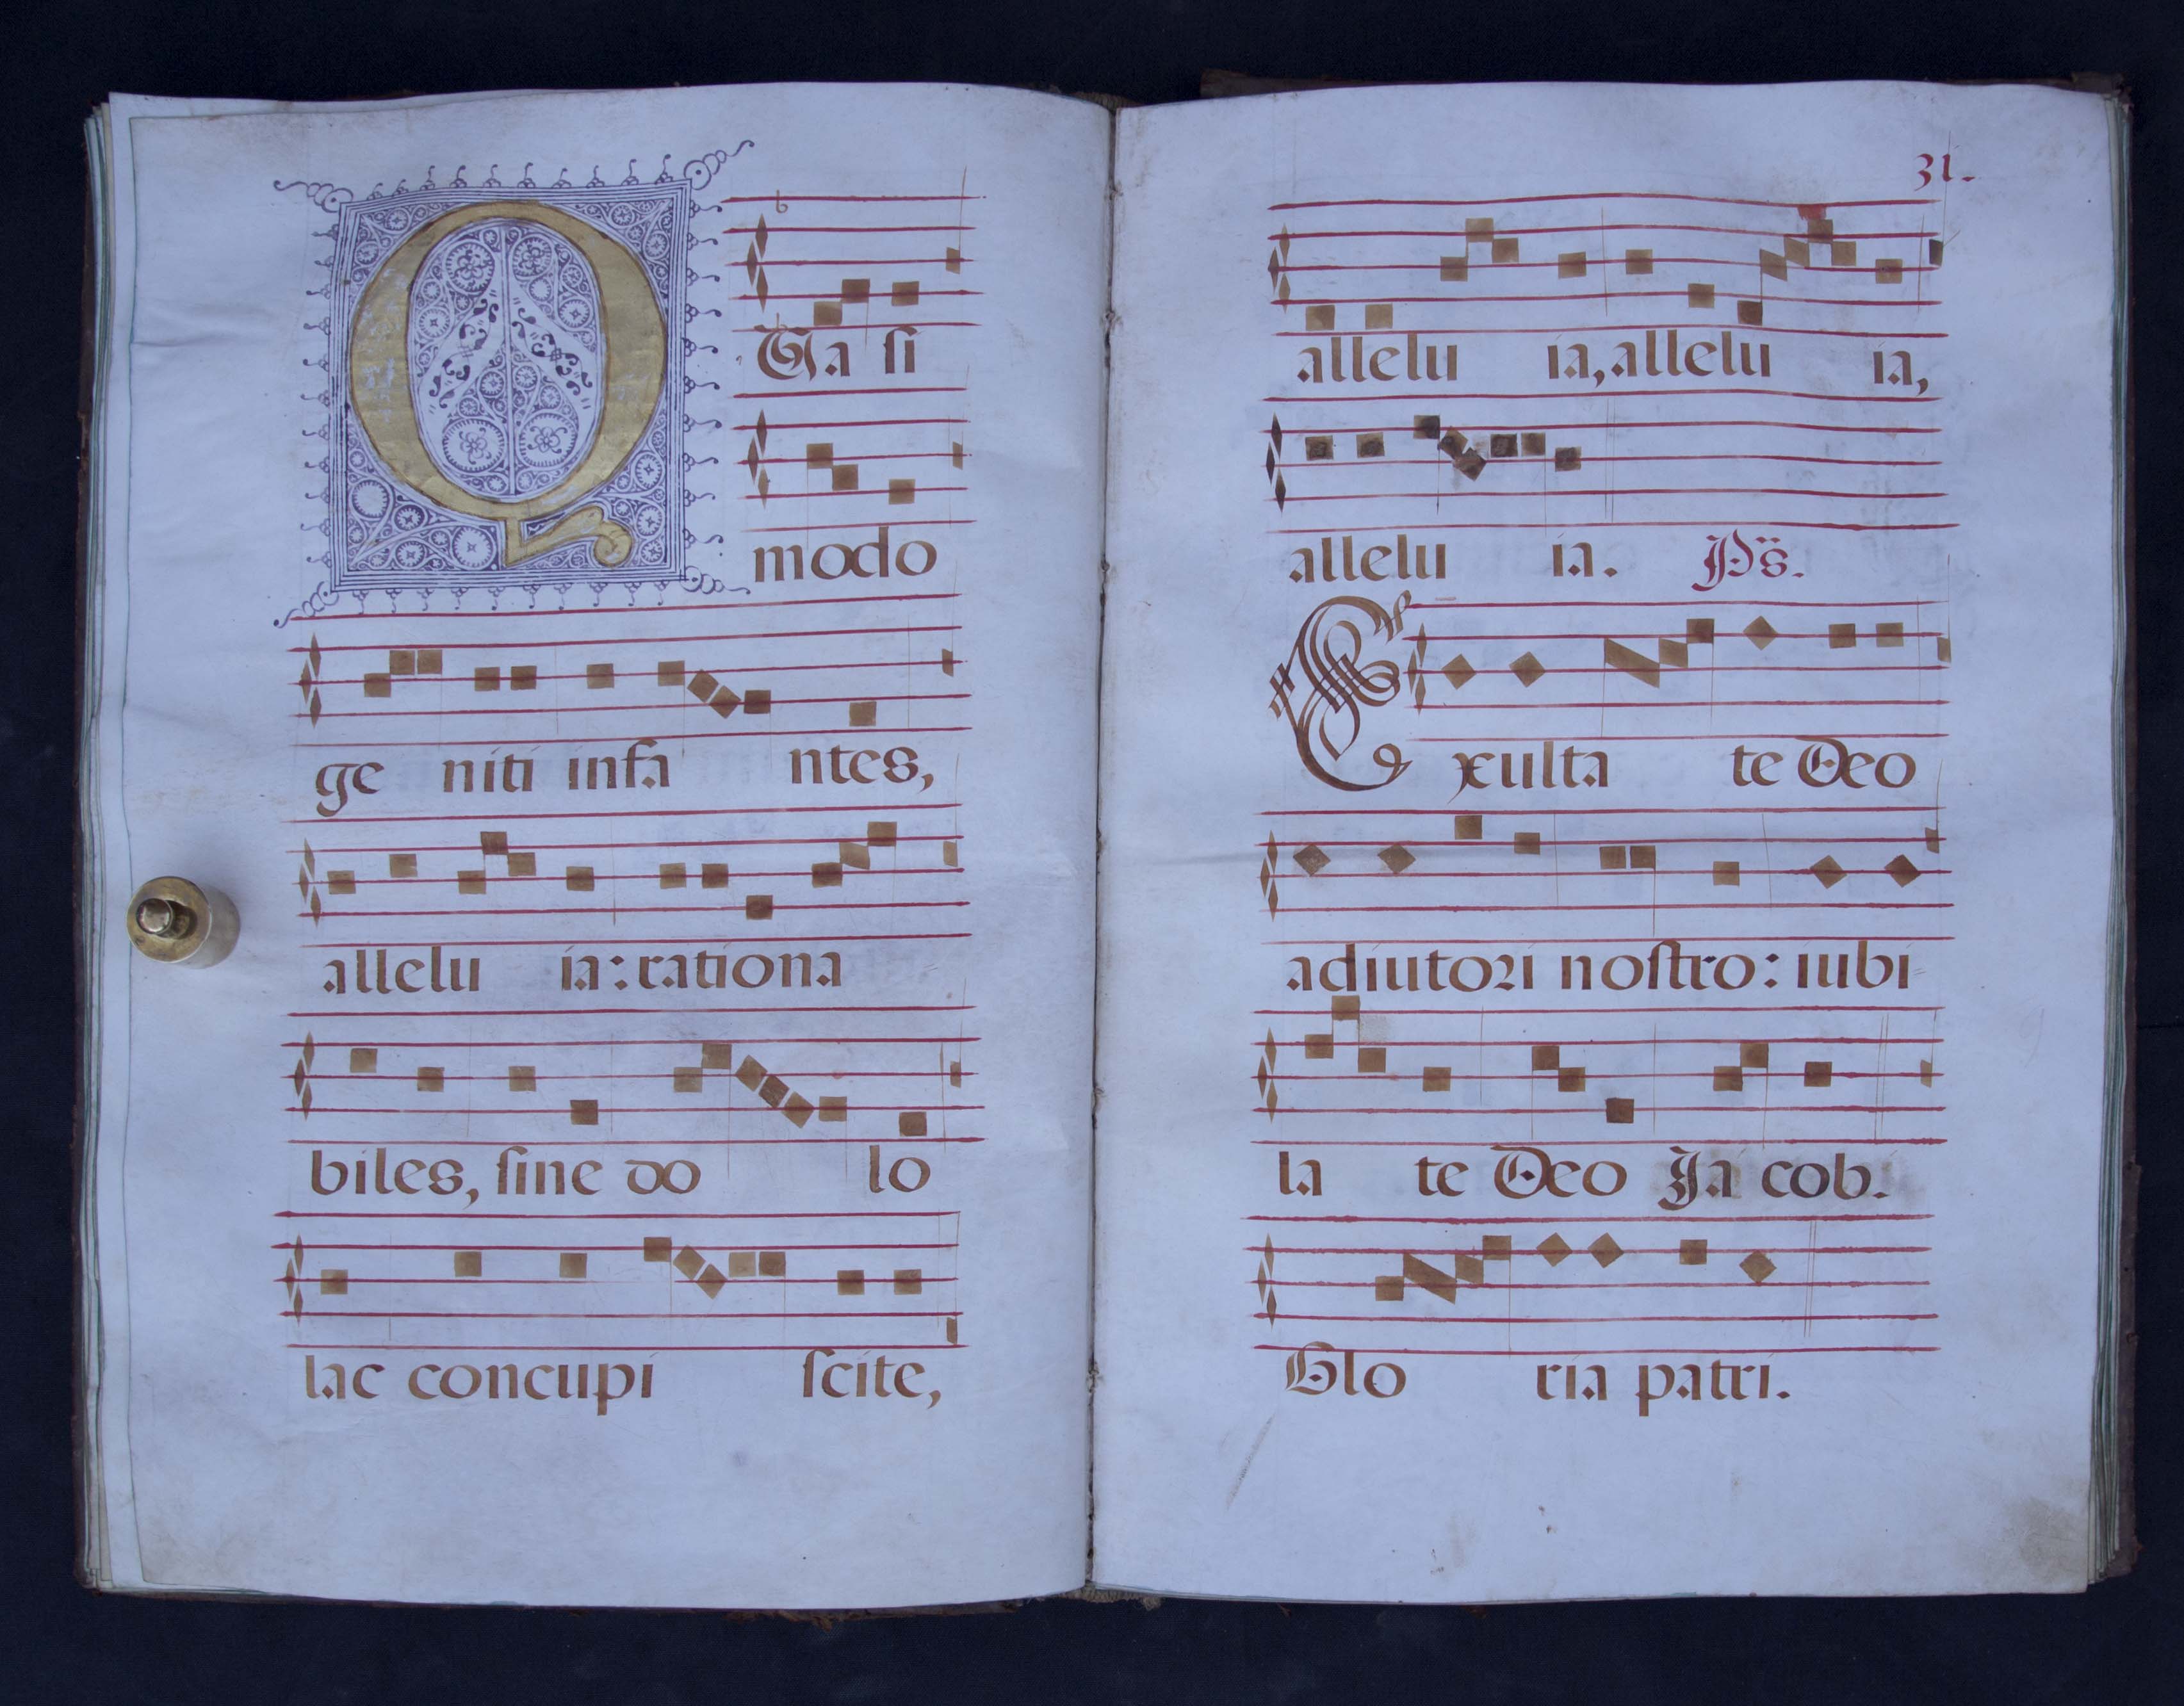 QUa si
modo
ge niti infa ntes,
allelu ia: rationa
biles, ſine do lo
lac concupi ſcite,
31.
allelu ia, allelu ia,
allelu ia. Ps.
Exulta te Deo
adiutori noſtro: iubi
la te Deo Ja cob.
Glo ria patri.